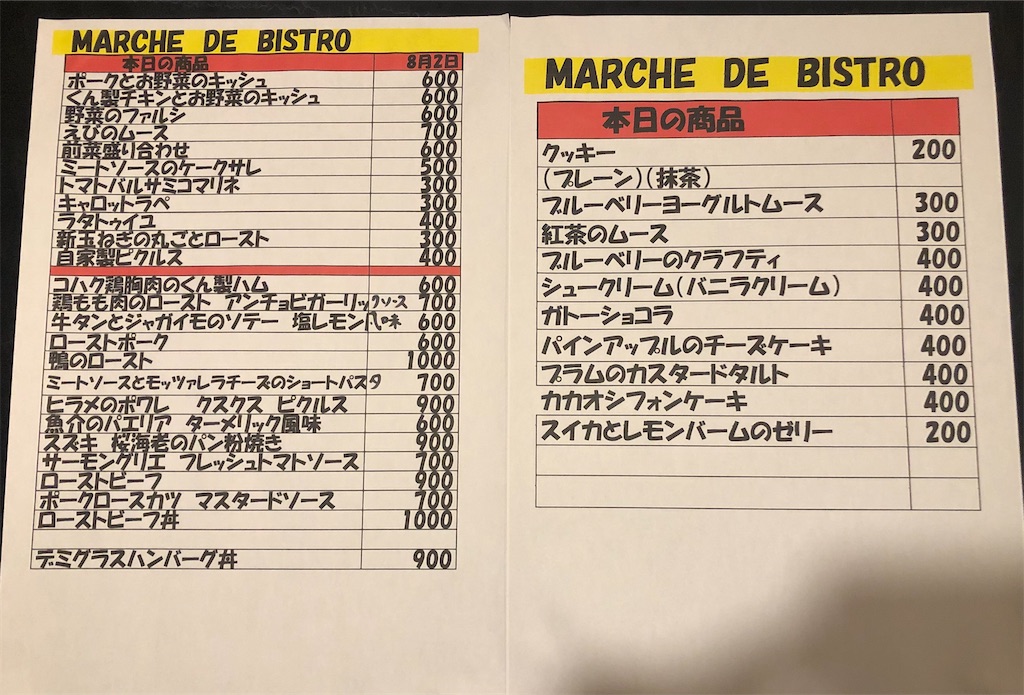 MARCHE DE BISTRO
本日の商品 8月2日
ポークとお野菜のキッシュ 600
くん製チキンとお野菜のキッシュ 600
野菜のファルシ 600
えびのムース 700
前菜盛り合わせ 600
ミートソースのケークサレ 500
トマトバルサミコマリネ 300
キャロットラペ 300
ラタトゥイユ 400
新玉ねぎの丸ごとロースト 300
自家製ピクルス 400
コハク鶏胸肉のくん製ハム 600
鶏もも肉のロースト アンチョビガーリックソース 700
牛タンとジャガイモのソテー 塩レモン風味 600
ローストポーク 600
鴨のロースト 1000
ミートソースとモッツァレラチーズのショートパスタ 700
ヒラメのポワレ クスクス ピクルス 900
魚介のパエリア ターメリック風味 600
スズキ 桜海老のパン粉焼き 900
サーモングリエ フレッシュトマトソース 700
ローストビーフ 900
ポークロースカツ マスタードソース 700
ローストビーフ丼 1000
デミグラスハンバーグ丼 900
MARCHE DE BISTRO
本日の商品
クッキー 200
(プレーン)(抹茶)
ブルーベリーヨーグルトムース 300
紅茶のムース 300
ブルーベリーのクラフティ 400
シュークリーム(バニラクリーム) 400
ガトーショコラ 400
パインアップルのチーズケーキ 400
プラムのカスタードタルト 400
カカオシフォンケーキ 400
スイカとレモンバームのゼリー 200